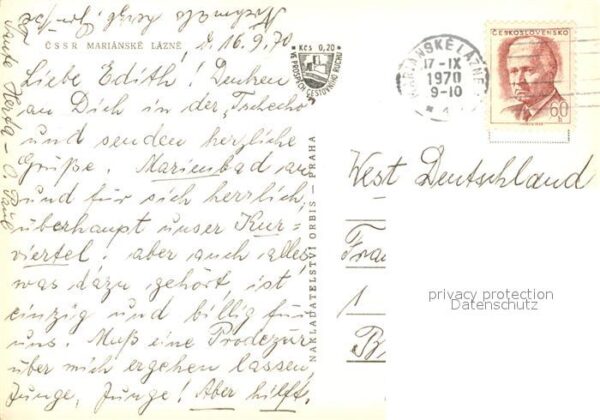 ČSSR MARIÁNSKÉ LÁZNĚ
d. 16.9.70
Liebe Edith! Denken
an Dich in der „Tschechoʺ
und senden herzliche
Grüße. Marienbad an
und für sich herrlich,
überhaupt unser Kur=
viertel. aber auch alles
was dazu gehört, ist
einzig und billig für
uns. Muß eine Prozedur
über mich ergehen lassen,
Junge, Junge! Aber hilft.
Tante Herta - O. Paul
Kčs 0,20
VE PROSPĚCH CESTOVNÍHO RUCHU
NAKLADATELSTVÍ ORBIS — PRAHA
MARIÁNSKÉ LÁZNĚ
17-IX
1970
9-10
ČESKOSLOVENSKO
60
h
West Deutschland
Frau
1
B
privacy protection
Datenschutz